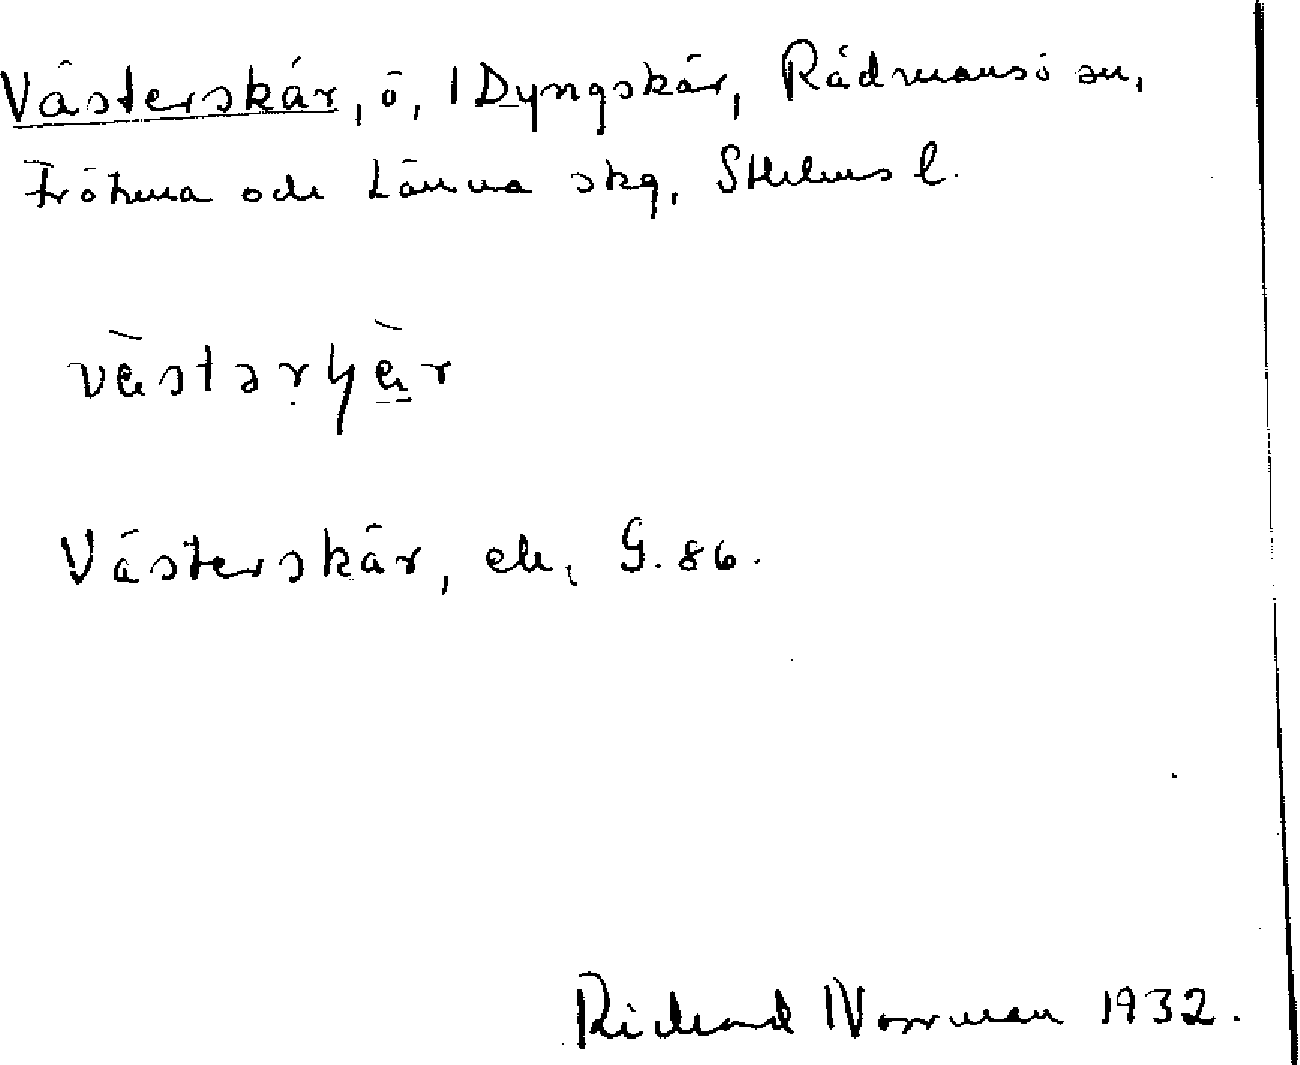 Västerskär, ö, 1 Dyngskär, Rådmansö sn,
Frötuna och Länna skg, Sthlms l.
västərɧär
Västerskär, ek, G. 86.
Richard Norrman 1932.